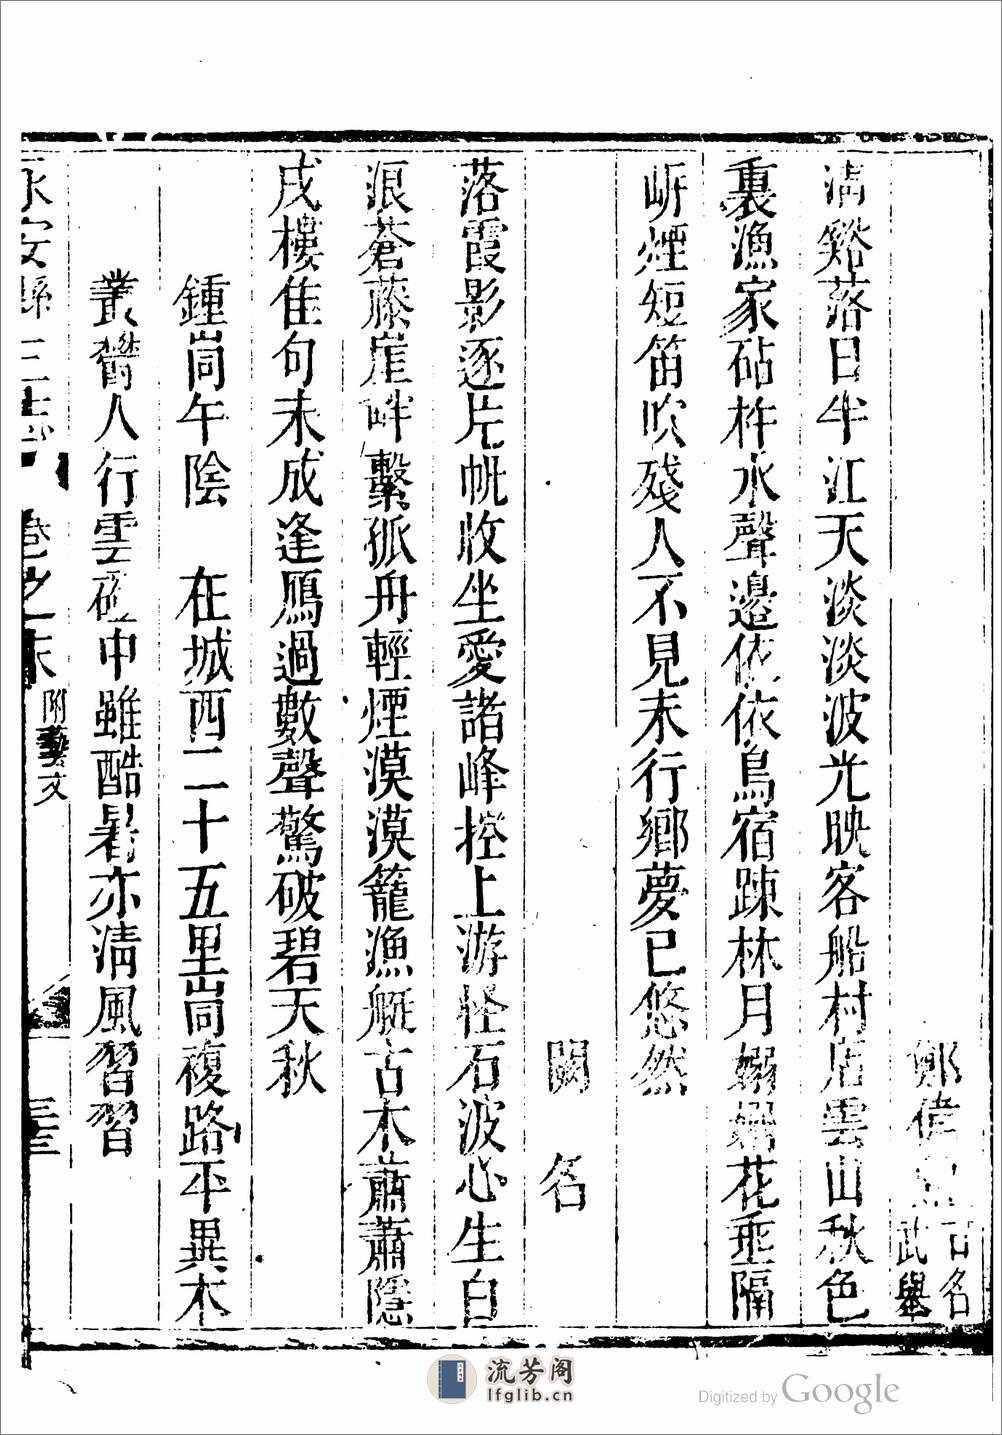 鄭偉
古名
武舉
清谿落日半江天淡淡波光映客船村店雲山秋色
裏漁家砧杵水聲邊依依鳥宿疎林月嫋嫋花垂隔
岍煙短笛吹殘人不見未行鄉夢已悠然
闕名
落霞影逐片帆收坐愛諸峰控上游怪石波心生白
浪蒼藤崖畔繫孤舟輕煙漠漠籠漁艇古木蕭蕭隱
戌樓佳句未成逢鴈過數聲驚破碧天秋
鍾峝午陰 在城西二十五里峝複路平異木
叢欝人行雲磴中雖酷暑亦清風習習
永安縣三志 卷之末 附藝文 三十三
流芳阁
lfglib.cn
Digitized by Google